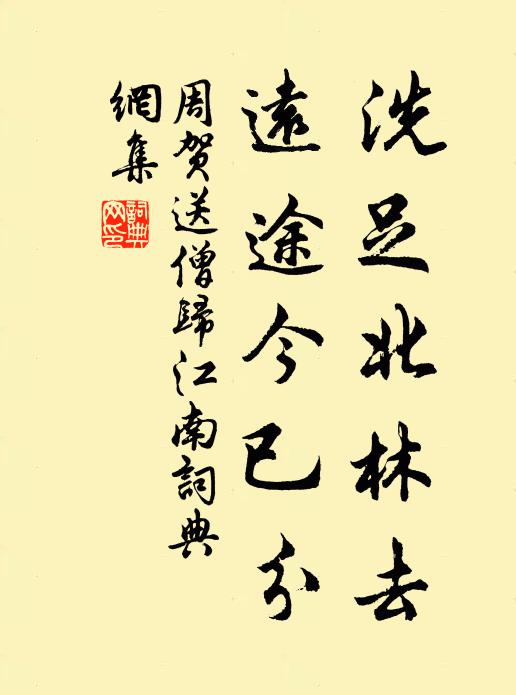 洗足北林去
遠途今已分
周贺送僧歸江南詞典
網集
詞典
网印